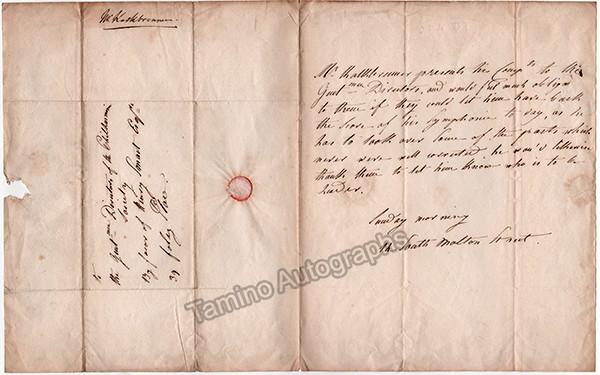 Mr Kalkbrenner
To
the Gentmen Directors of the Philharmc
Society
By favor of Henry Smart Esqr
39 foley Place
Mr Kalkbrenner presents his Compts to the
Gentmen Directors, and would feel much obliged
to them if they could let him have back
the Score of his Symphonie to day, as he
has to look over some of the parts which
never were well corrected. he wou'd likewise
thank them to let him know who is to be
Leader.
Sunday morning
14 South Molton Street.
Tamino Autographs